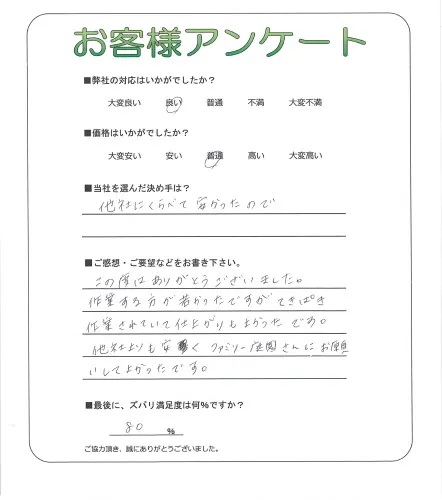 お客様アンケート
■弊社の対応はいかがでしたか?
大変良い 良い 普通 不満 大変不満
■価格はいかがでしたか?
大変安い 安い 普通 高い 大変高い
■当社を選んだ決め手は?
他社にくらべて安かったので
■ご感想・ご要望などをお書き下さい。
この度はありがとうございました。
作業する方が若かったですがてきぱき
作業されていて仕上がりも上かったです。
他社よりも安く ファミリー庭園さんにお願
いして上かったです。
■最後に、ズバリ満足度は何%ですか?
80 %
ご協力頂き、誠にありがとうございました。